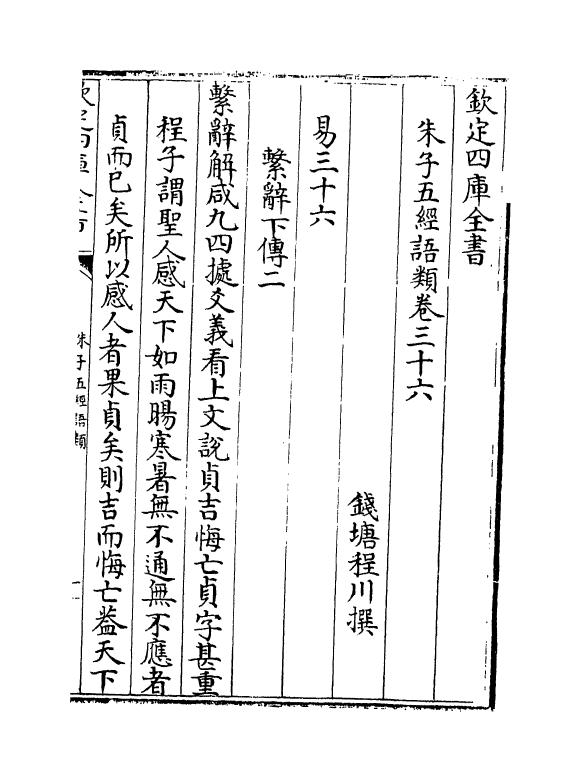 欽定四庫全書
朱子五經語類卷三十六
錢塘程川撰
易三十六
繫辭下傳二
繫辭解咸九四據爻義看上文說貞吉悔亡貞字甚重
程子謂聖人感天下如雨暘寒暑無不通無不應者
貞而已矣所以感人者果貞矣則吉而悔亡蓋天下
朱子五經語類
一